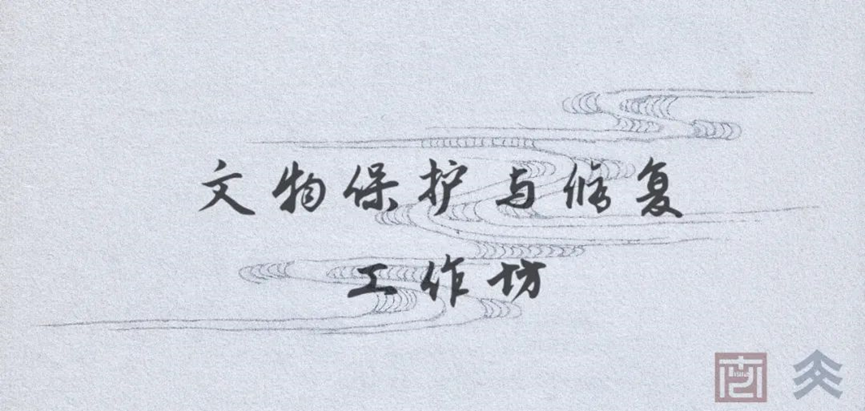 文物保护与修复
工作坊